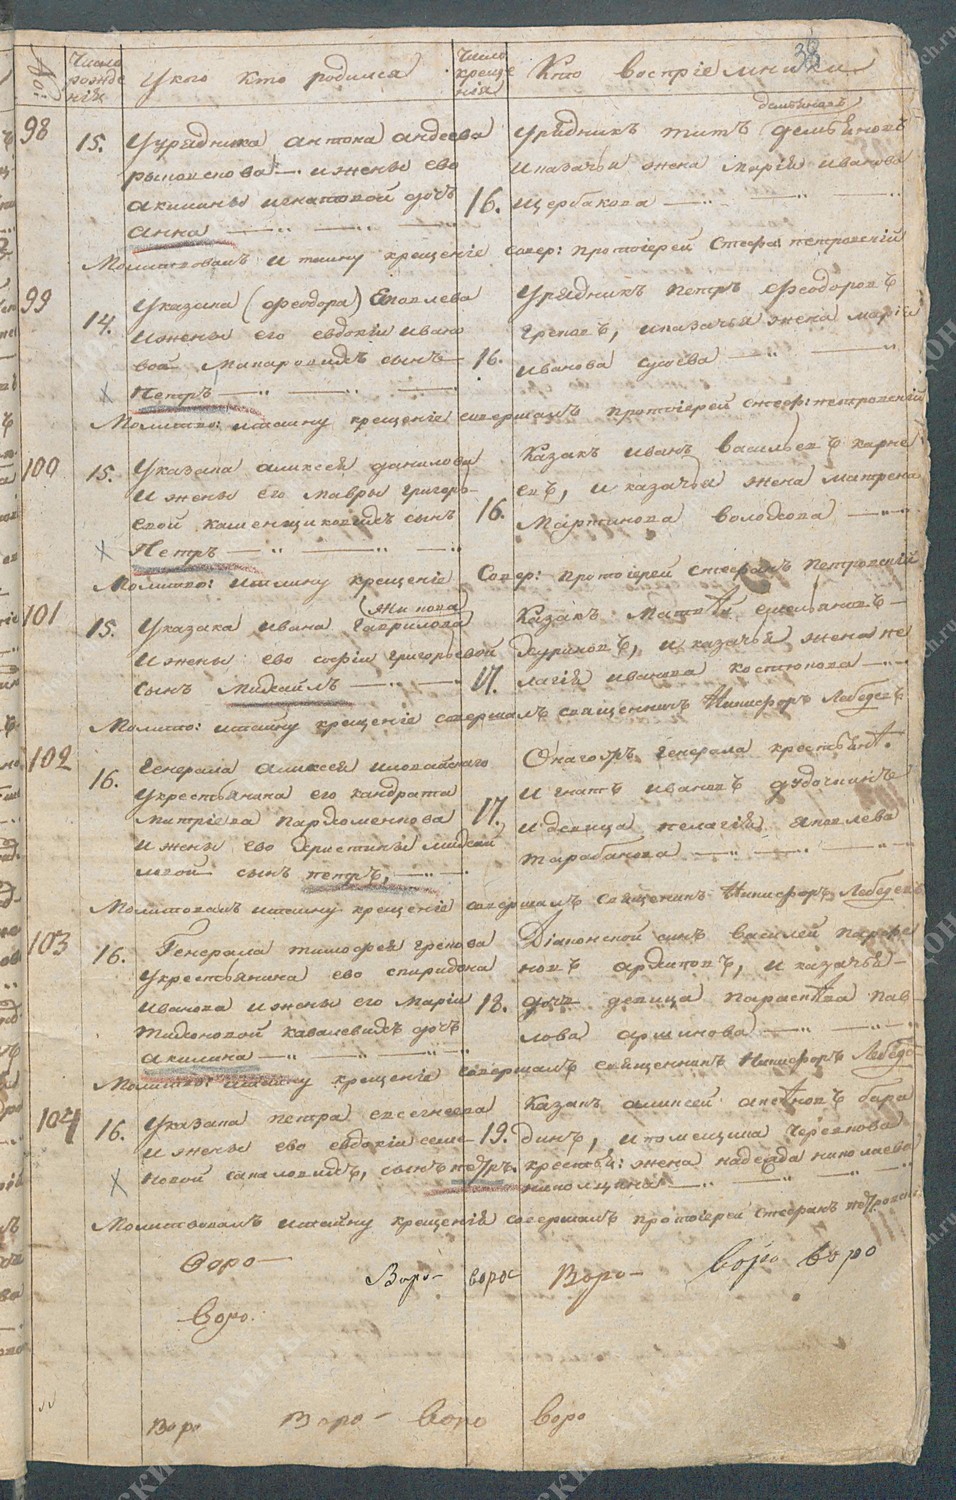 38
No:
Число рожде нiя
У кого кто родился
Число креще нiя
Кто восприемники
98
15.
У урядника антона андеева
рыковскова — и жены ево
акилины игнатовой дочь
анна
16.
Урядникъ титъ демьяновъ
демьяновъ
и казачья жена марiя иванова
щербакова
Молитвовалъ и таину крещенiе совер: протоiерей Стефа: петровскiй
99
14.
У казака (феодора) Яковлева
и жены его евдокiи ивано
вой макаровыхъ сынъ
Петръ
16.
Урядникъ петръ феодоровъ
грековъ, и казачья жена марiя
иванова сулева
Молитво: и таину крещенiе совершалъ протоiерей стеф: петровскiй
100
15.
У казака аликсея данилова
и жены его мавры григоръ
евой каменщиковыхъ сынъ
Петръ
16.
Казакъ иванъ васильевъ карне
евъ, и казачья жена матрена
Мартинова володкова
Молитво: и таину крещенiе Совер: протоiерей стефанъ петровскiй
101
15.
У казака ивана гаврилова
(жинова)
и жены ево софiи григорьевой
сынъ михаилъ
17.
Казакъ Матвѣй емельяновъ
журиковъ, и казачья жена пе
лагiя иванова костюкова
Молито: и таину крещенiе совершалъ священникъ Никифоръ Лебедевъ
102
16.
Генерала аликсея иловайскаго
у крестьянина его кандрата
митрiева пархоменкова
и жены ево христины
сынъ петръ,
17.
Онагожъ генерала крестьян.
игнатъ ивановъ дудочкинъ
и девица пелагiя яковлева
тарабанова
Молитвовалъ и таину крещенiе совершалъ священикъ Никифоръ Лебедевъ
103
16.
Генерала тимофея грекова
у крестьянина ево спиридона
иванова и жены его марiи
тихоновой кавалевыхъ дочь
акилина
18.
Дiаконской синъ василей парфе
новъ архиповъ, и казачья
дочь девица параскѣва пав
лова аршинова
Молитво: и таину крещенiе совершалъ священникъ Никифоръ Лебеде
104
16.
У казака петра евсегнеева
и жены ево евдокiи семе
новой сакаловыхъ, сынъ петръ.
19.
Казакъ аликсей антоновъ бара
динъ, и помещика Черевкова
крестья: жена надежда николаева
николщина
Молитвовалъ и таину крещенiя совершалъ протоiерей стефанъ петровскiй
Воро
Воро
ворос
Воро
Воро
воро
Воро.
Воро
Воро
Воро
Воро